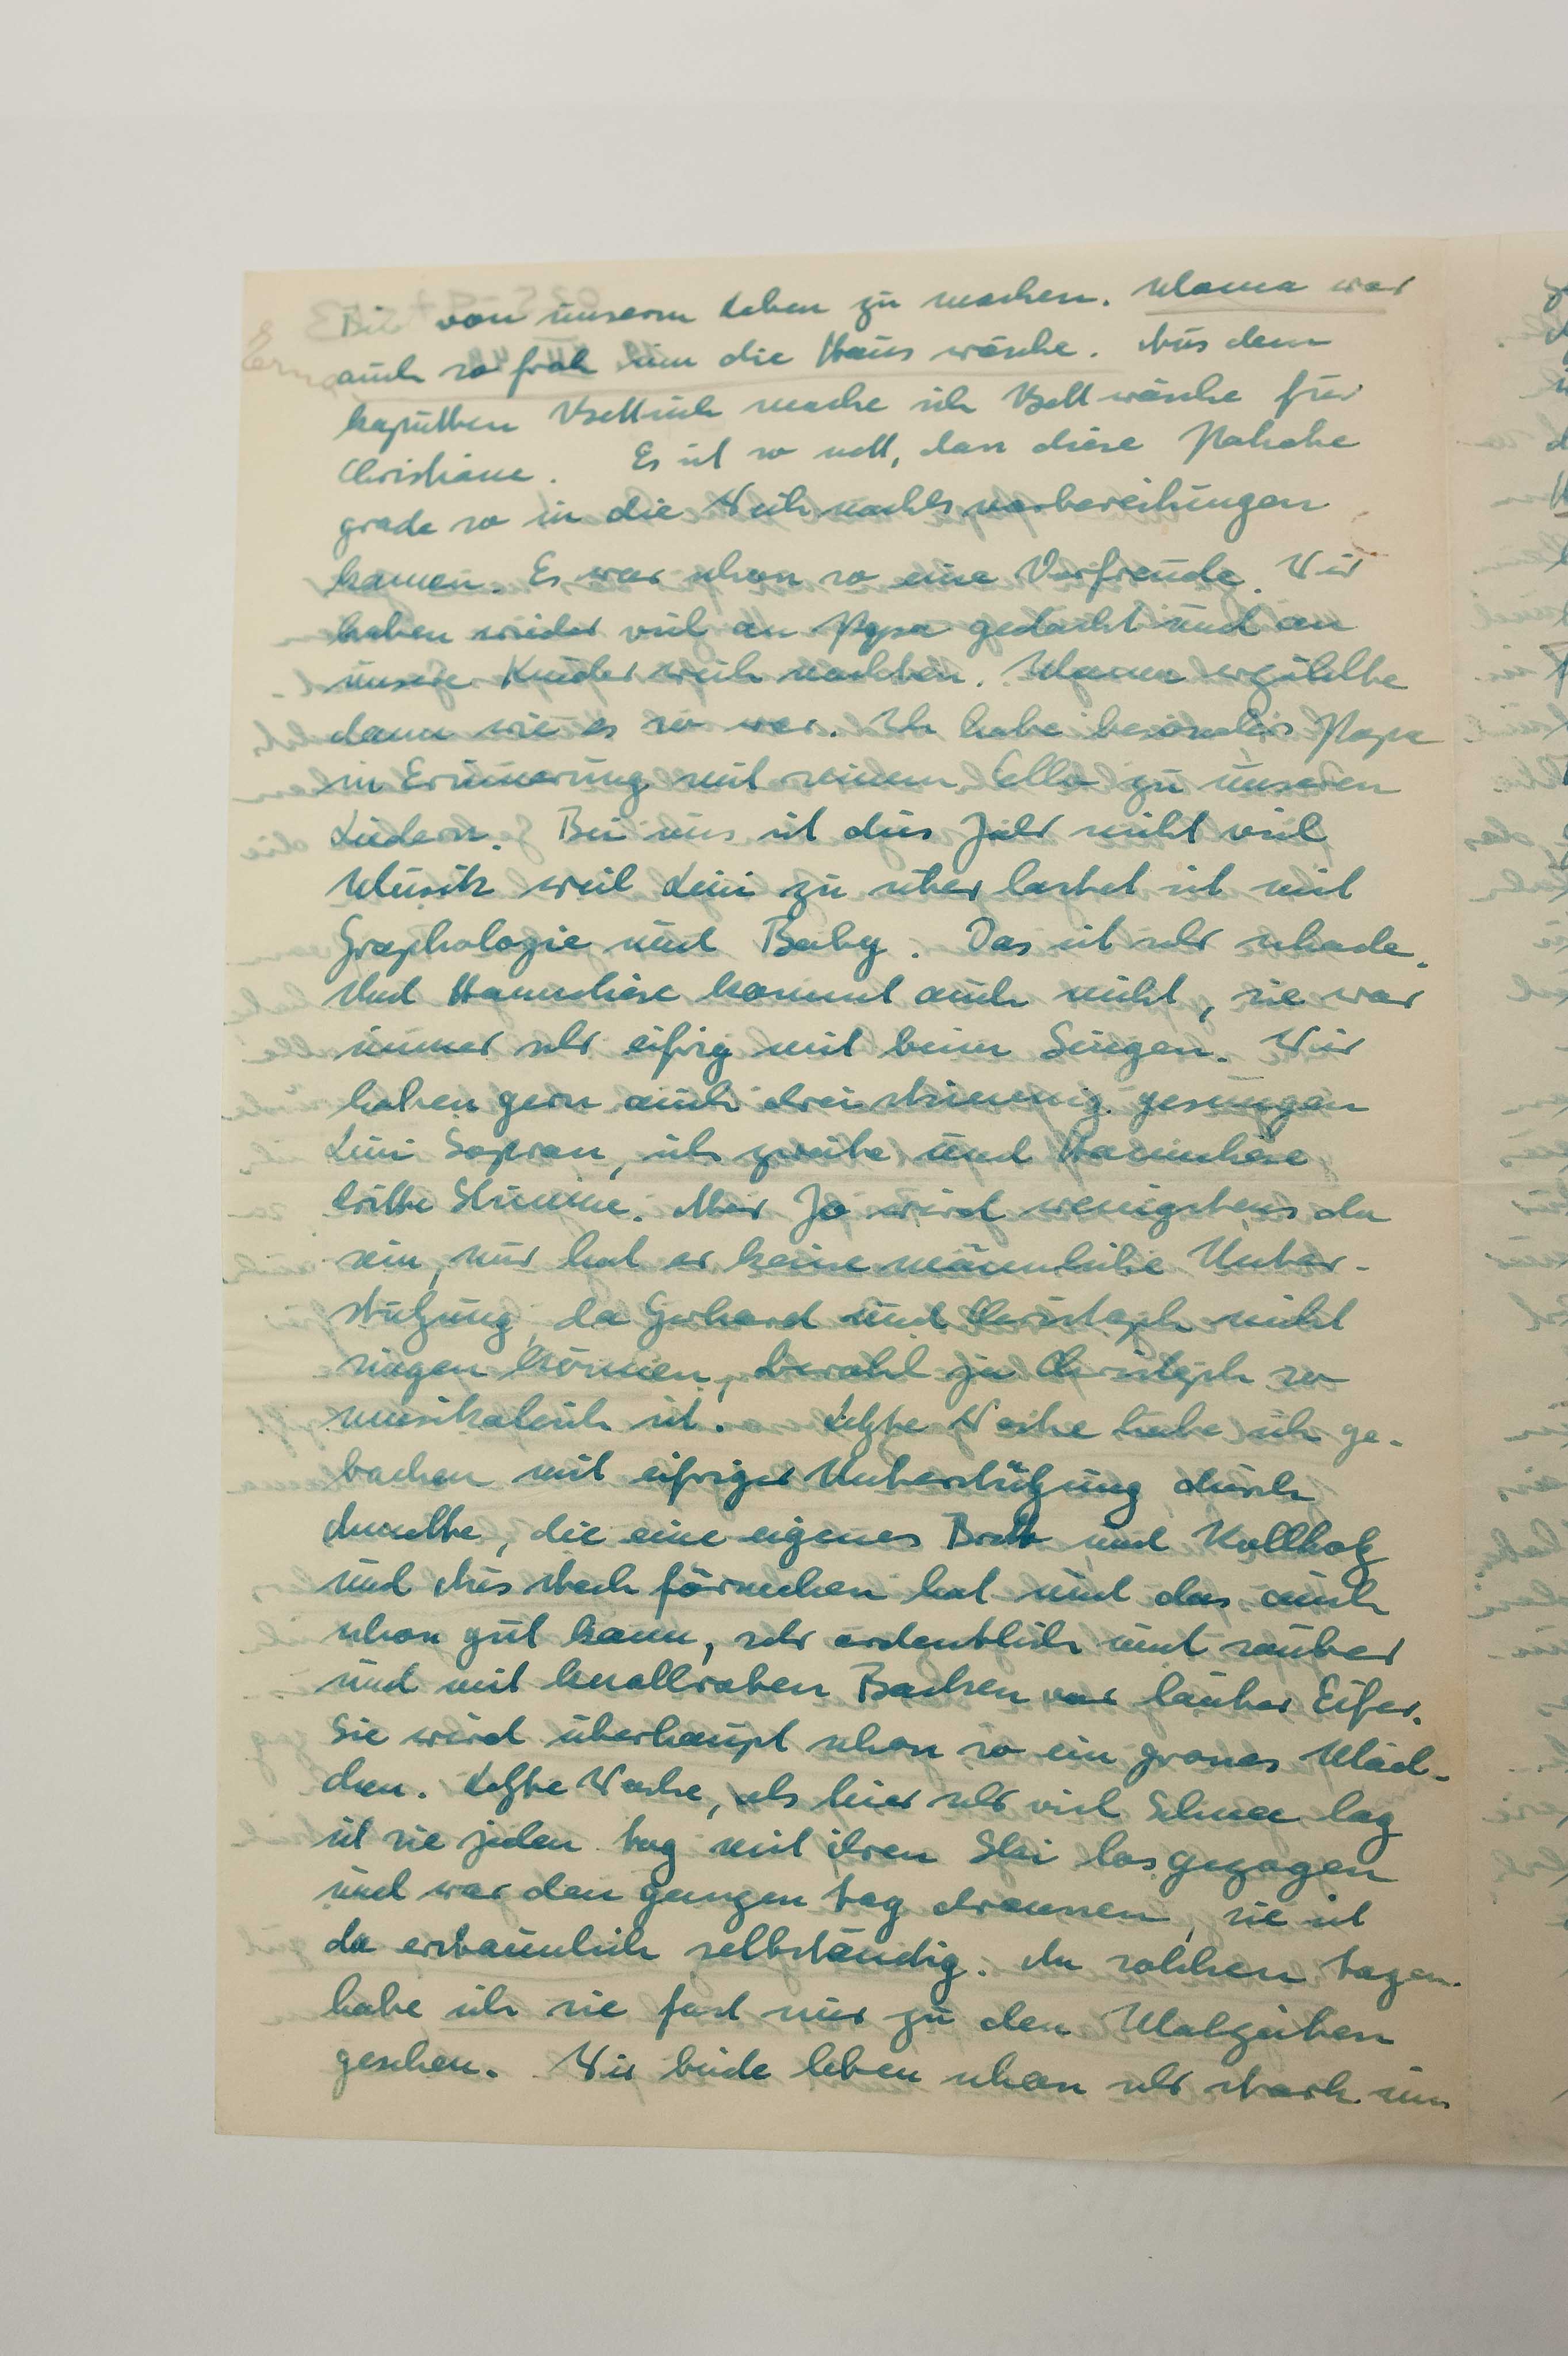 Bild von unserm Leben zu machen. Mama war
auch so froh um die Hauswäsche. Aus dem
kaputten Betttuch mache ich Bettwäsche für
Christiane. Es ist so nett, dass diese Pakete
grade so in die Weihnachtsvorbereitungen
kamen. Es war schon so eine Vorfreude. Wir
haben wieder viel an Papa gedacht und an
unsere Kinderweihnachten. Mama erzählte
dann wie es so war. Ich habe besonders Papa
in Erinnerung mit seinem Cello zu unseren
Liedern. Bei uns ist dies Jahr nicht viel
Musik weil Leni zu überlastet ist mit
Graphologie und Baby. Das ist sehr schade.
Und Hannliese kommt auch nicht, sie war
immer sehr eifrig mit beim Singen. Wir
haben gern auch dreistimmig gesungen
Leni Sopran, ich zweite und Hannliese
dritte Stimme. Aber Jo wird wenigstens da
sein, nur hat er keine männliche Unter-
stützung, da Gerhard und Christoph nicht
singen können, obwohl ja Christoph so
musikalisch ist. Letzte Woche habe ich ge-
backen mit eifriger Unterstützung durch
Annette, die eine eigenes Brett und Nullholz
und Ausstechförmchen hat und das auch
schon gut kann, sehr ordentlich und sauber
und mit knallroten Backen vor lauter Eifer.
Sie wird überhaupt schon so ein grosses Mäd-
chen. Letzte Woche, als hier sehr viel Schnee lag
ist sie jeden Tag mit ihren Ski losgezogen
und war den ganzen Tag draussen, sie ist
da erstaunlich selbständig. An solchen Tagen
habe ich sie fast nur zu den Malzeiten
gesehen. Wir beide leben schon sehr stark uns